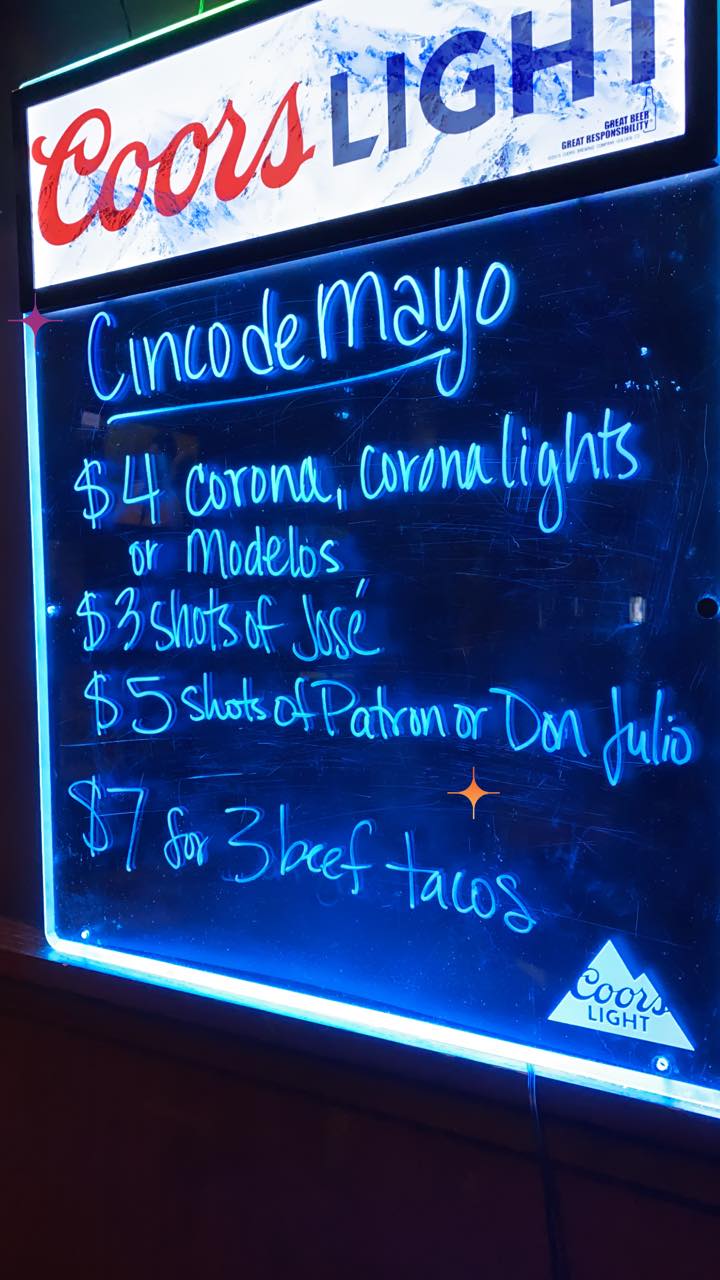 Coors LIGHT
GREAT BEER
GREAT RESPONSIBILITY
Cinco de Mayo
$4 corona, corona lights
or Modelos
$3 shots of José
$5 shots of Patron or Don Julio
$7 for 3 beef tacos
Coors
LIGHT